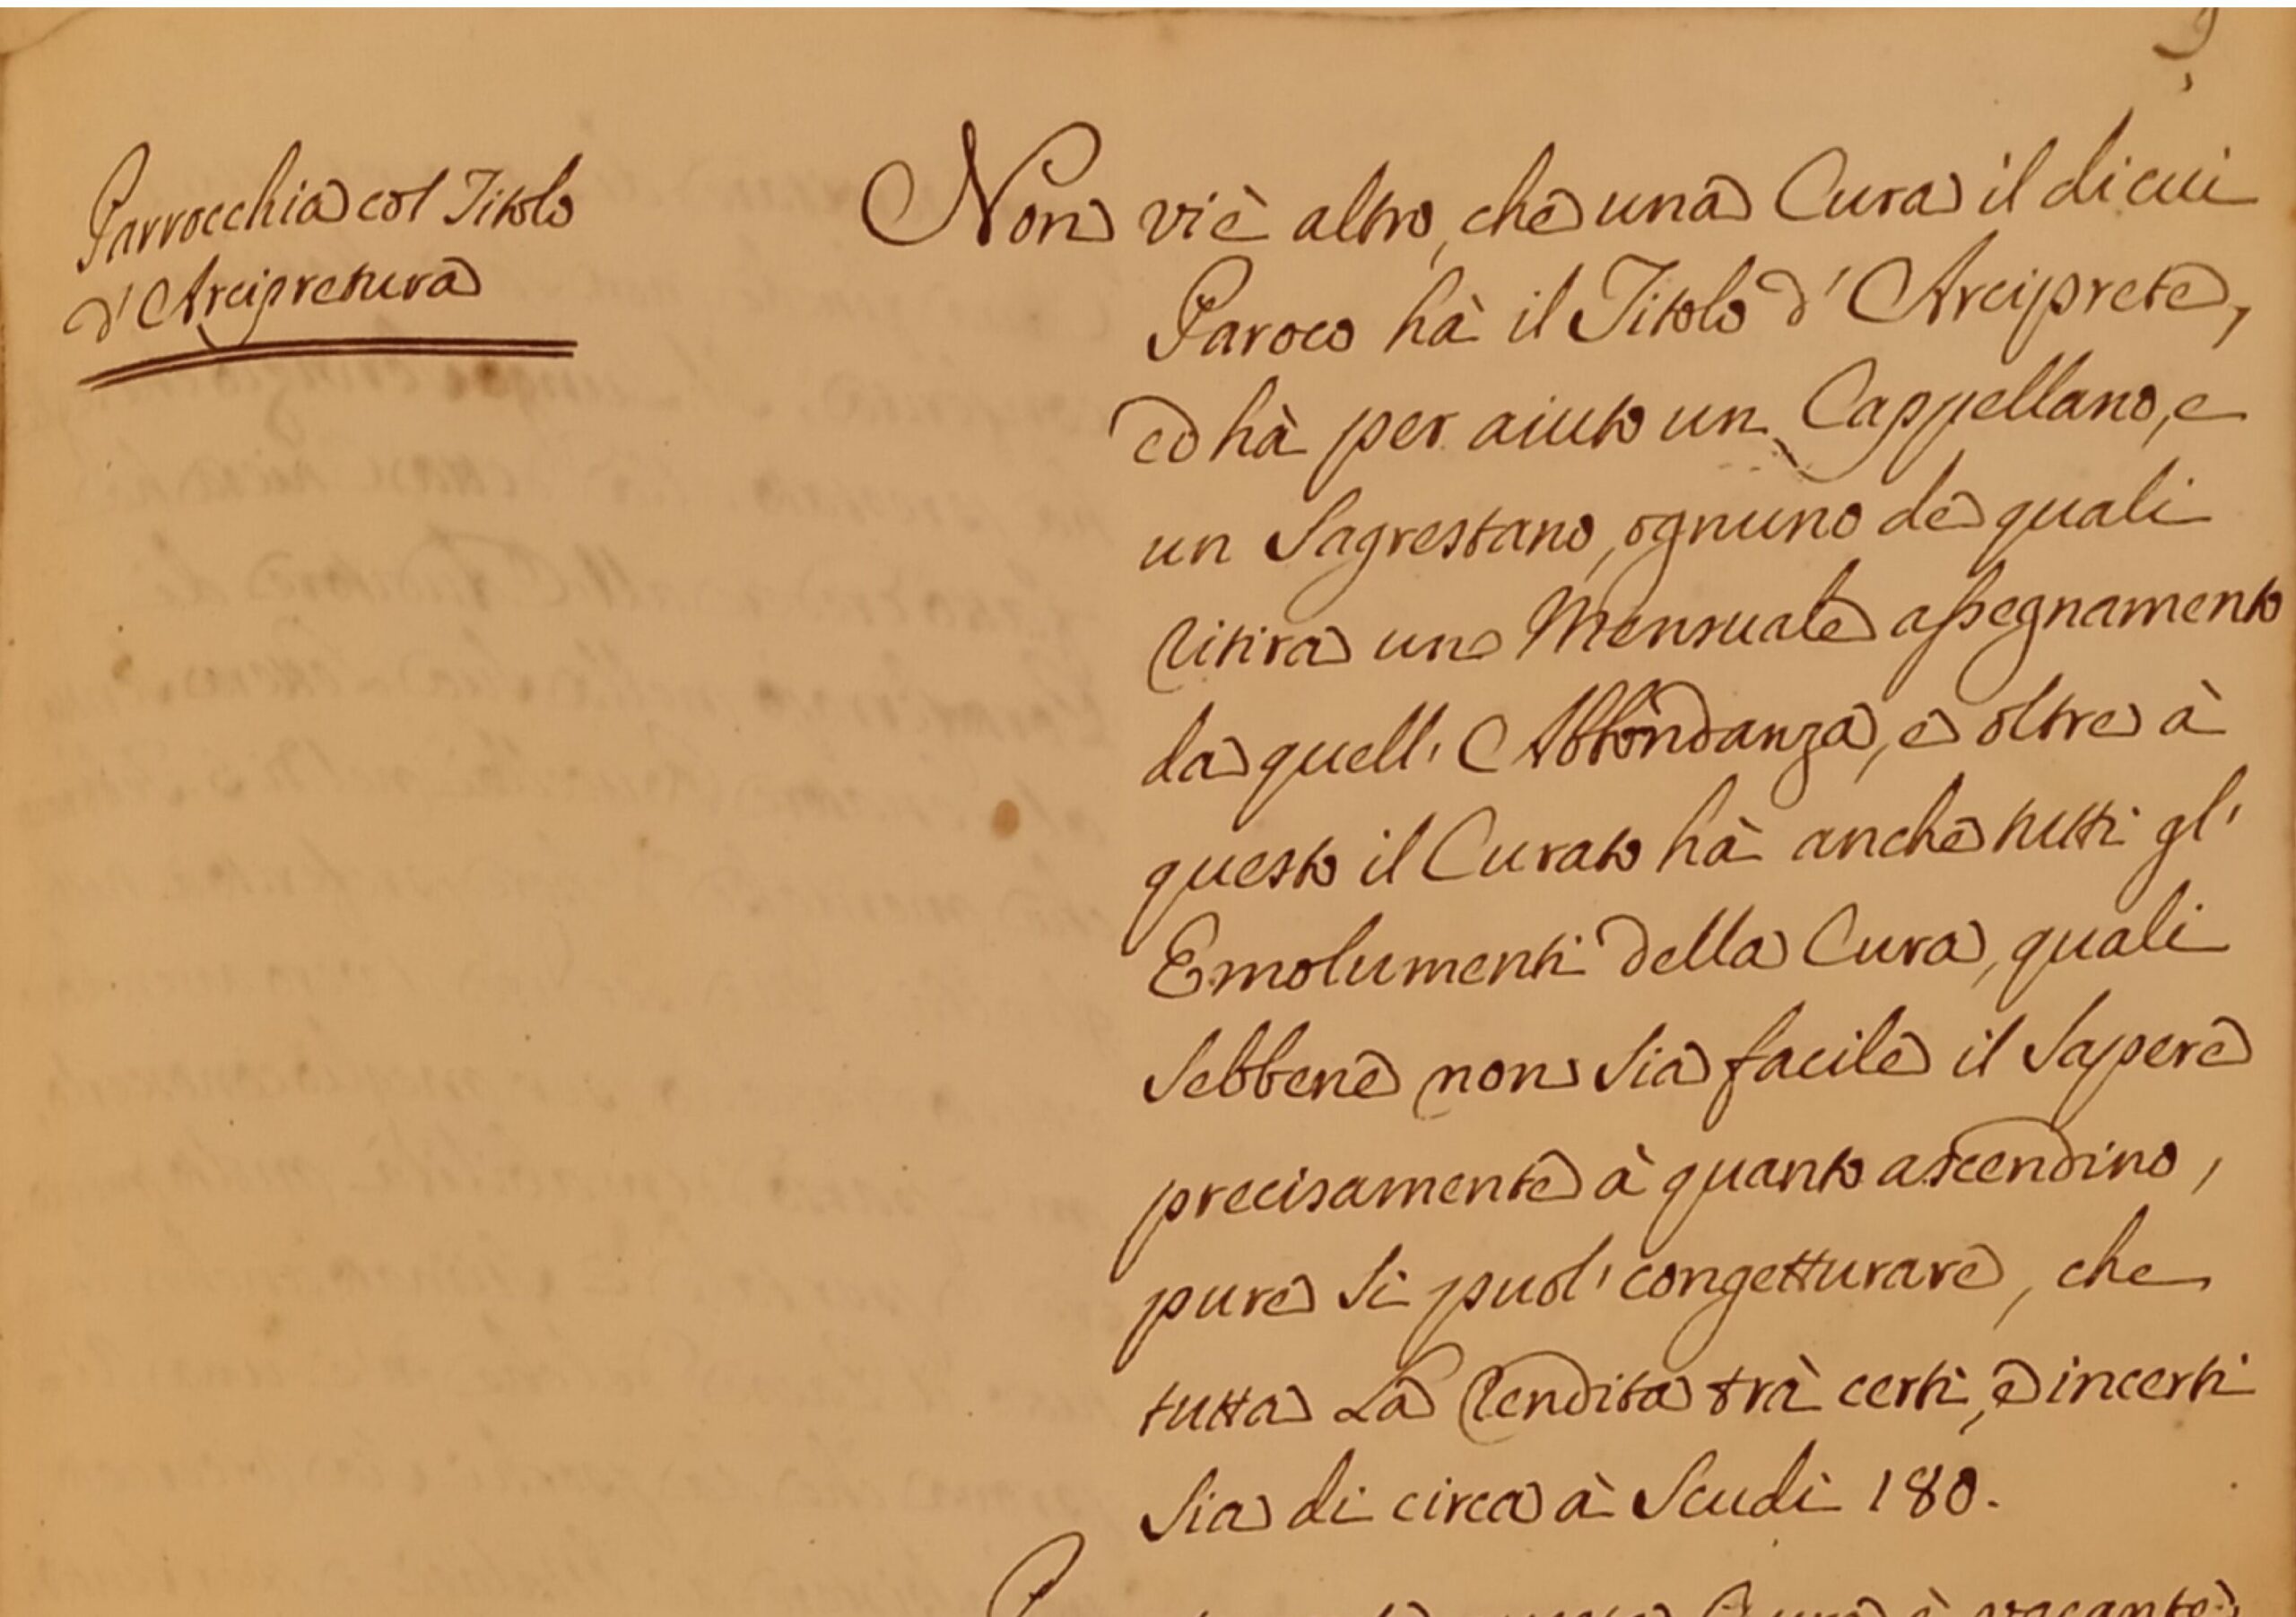 9
Parrocchia col Titolo
d'Arcipretura
Non vi è altro, che una Cura il di cui
Paroco hà il Titolo d'Arciprete,
ed hà per aiuto un Cappellano, e
un Sagrestano, ognuno de quali
ritira uno Mensuale assegnamento
da quell'Abbondanza, e oltre à
questo il Curato hà anche tutti gl'
Emolumenti della Cura, quali
Sebbene non Sia facile il Sapere
precisamente à quanto ascendino,
pure Si puol' congetturare, che
tutta La Rendita trà certi, e incerti
Sia di circa à Scudi 180.
Cura è vacante